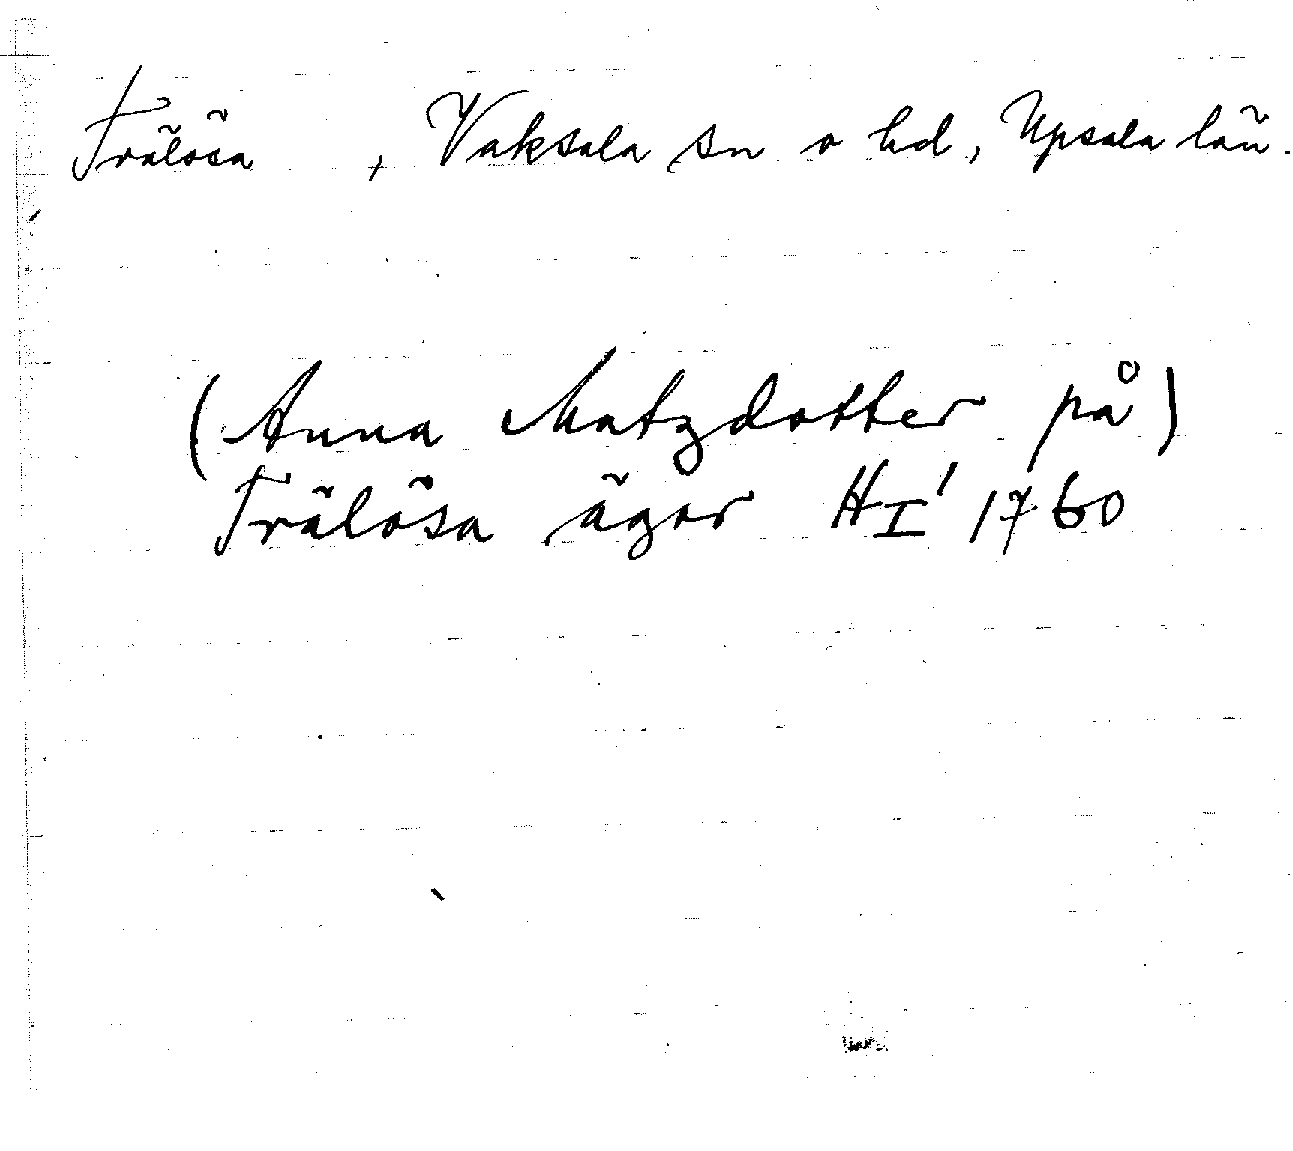 Trälösa , Vaksala sn o hd, Upsala län.
(Anna Matzdotter på)
Trälösa ägor HI' 1760